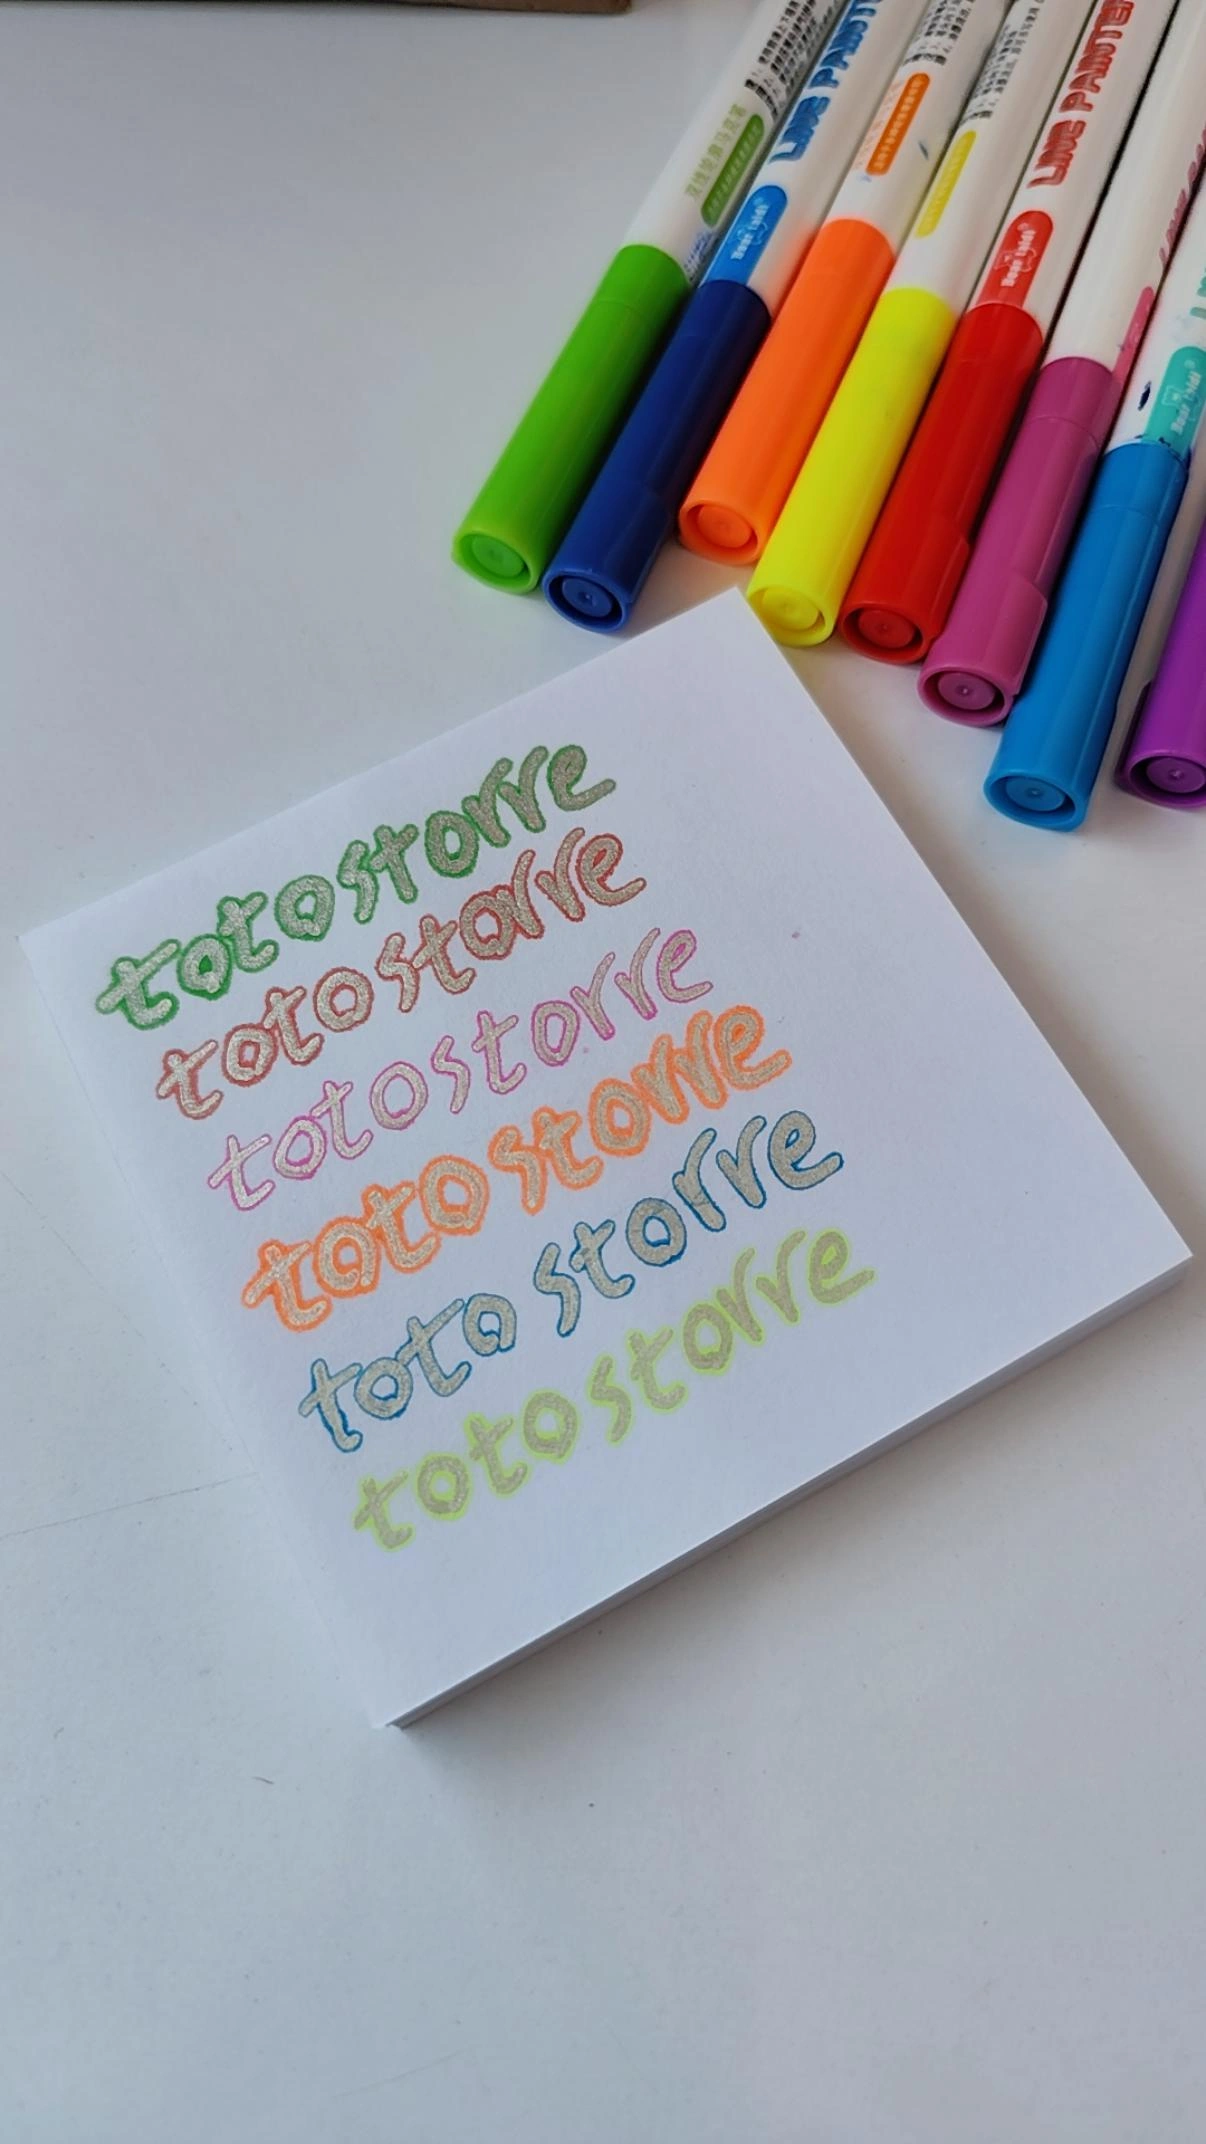 LINE PAINTE
LINE PAINTE
双线轮廓马克笔
totostorre
totostorre
totostorre
toto storre
toto storre
totostorre